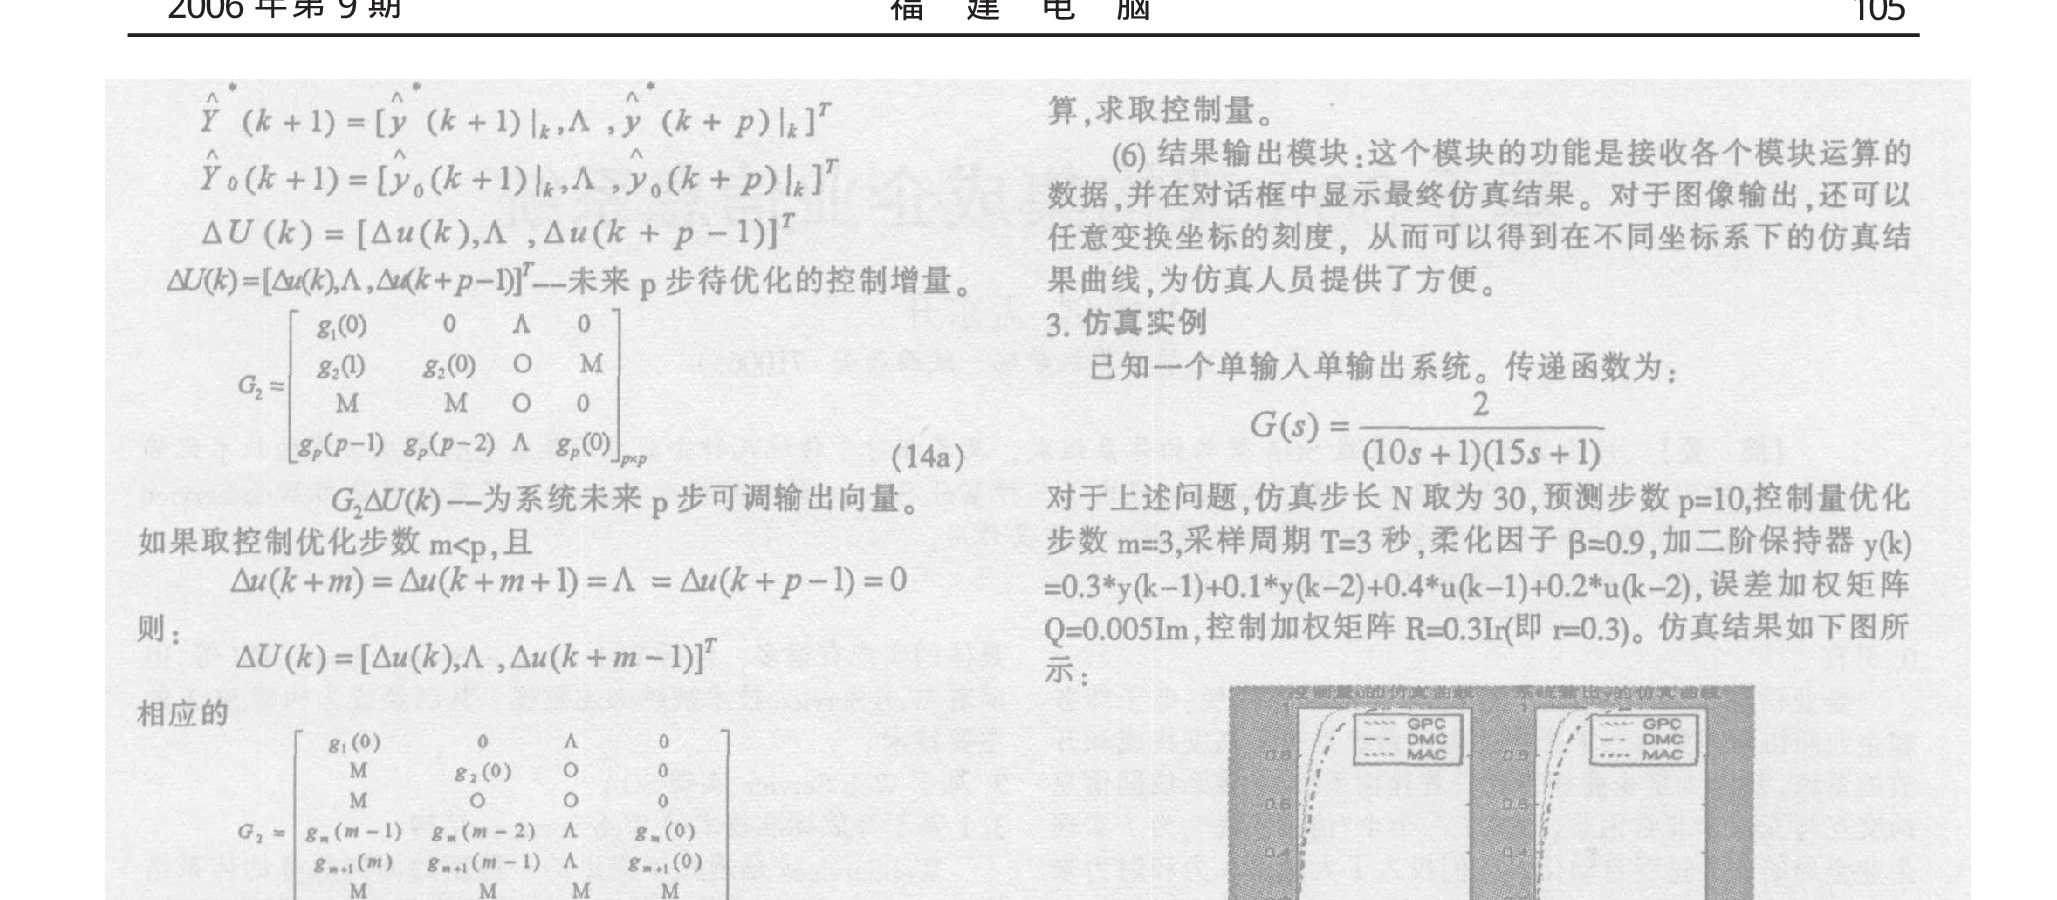 2006 年第 9 期 福 建 电 脑 105
Ŷ* (k + 1) = [ŷ* (k + 1)|k,Λ ,ŷ* (k + p)|k]^T
Ŷ0(k + 1) = [ŷ0(k + 1)|k,Λ ,ŷ0(k + p)|k]^T
ΔU (k) = [Δu(k),Λ ,Δu(k + p − 1)]^T
ΔU(k)=[Δu(k),Λ ,Δu(k+p−1)]^T—未来 p 步待优化的控制增量。
g1(0) 0 Λ 0
g2(1) g2(0) O M
G2 =
M M O 0
gp(p−1) gp(p−2) Λ gp(0) p×p (14a)
G2ΔU(k)—为系统未来 p 步可调输出向量。
如果取控制优化步数 m<p,且
Δu(k+m) = Δu(k+m+1) = Λ = Δu(k+p−1) = 0
则:
ΔU(k) = [Δu(k),Λ ,Δu(k+m−1)]^T
相应的
g1(0) 0 Λ 0
M g2(0) O 0
M O O 0
G2 = gm(m−1) gm(m−2) Λ gm(0)
gm+1(m) gm+1(m−1) Λ gm+1(0)
M M M M
算,求取控制量。
(6) 结果输出模块:这个模块的功能是接收各个模块运算的
数据,并在对话框中显示最终仿真结果。对于图像输出,还可以
任意变换坐标的刻度，从而可以得到在不同坐标系下的仿真结
果曲线,为仿真人员提供了方便。
3. 仿真实例
已知一个单输入单输出系统。传递函数为:
G(s) = 2 / (10s+1)(15s+1)
对于上述问题,仿真步长 N 取为 30,预测步数 p=10,控制量优化
步数 m=3,采样周期 T=3 秒,柔化因子 β=0.9,加二阶保持器 y(k)
=0.3*y(k-1)+0.1*y(k-2)+0.4*u(k-1)+0.2*u(k-2),误差加权矩阵
Q=0.005Im,控制加权矩阵 R=0.3Ir(即 r=0.3)。仿真结果如下图所
示:
控制量u的仿真曲线 系统输出y的仿真曲线
1 GPC 1 GPC
DMC DMC
0.8 MAC 0.8 MAC
0.6 0.6
0.4 0.4